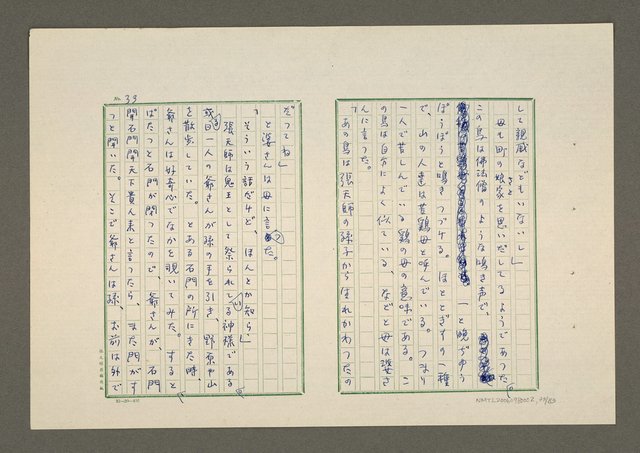 して親戚などもいないし」
母も町の娘家を思いだしてるようであった。
さと
この鳥は佛法僧のような鳴き声で、
一と晩ぢゆう
ぽうぽうと鳴きつづける。ほととぎすの一種
で、山の人達は苦鶏母と呼んでいる。つまり
一人で苦しんでいる鶏の母の意味である。こ
の鳥は自分によく似ている、などと母は婆さ
んに言った。
「あの鳥は張天師の孫子から生れかわったの
だってね」
と婆さんは母に言った。
「そういう話だけど、ほんとか知ら」
張天師は鬼王として祭られてる神様である
或る日一人の爺さんが孫の手を引き、野原や山
を散歩していた。とある石門の所にきた時、
爺さんは好奇心でなかを覗いてみた。すると
ぱたっと石門が閉ったので、爺さんが、石門
開石門開天下貴人来と言ったら、また門がす
っと開いた。そこで爺さんは孫、お前は外で
No. 33
NMTL20060980002, 33/83